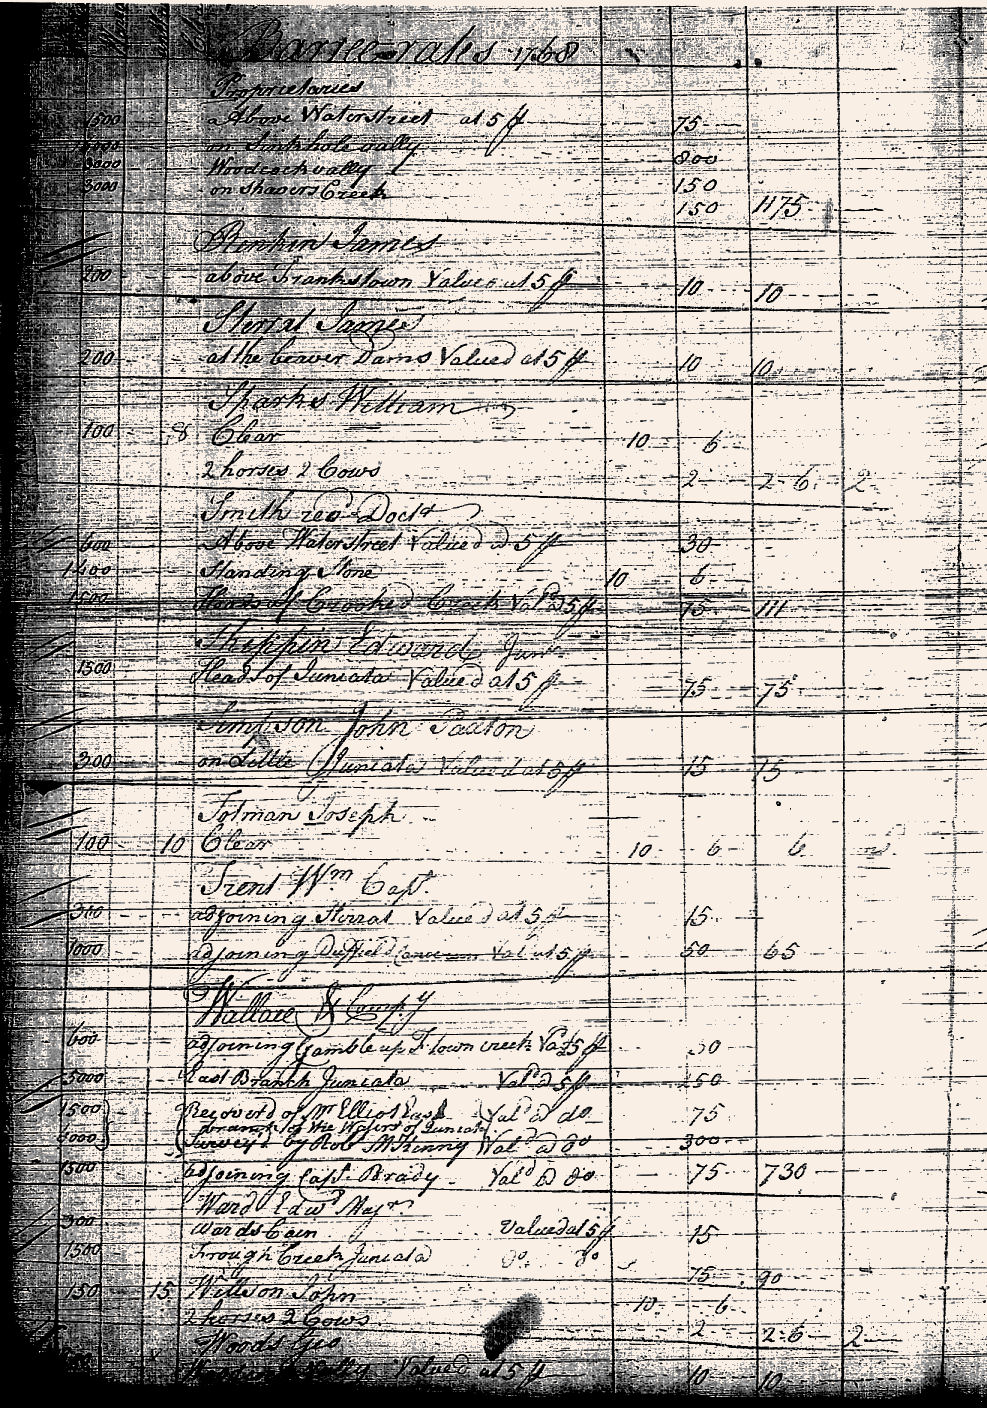 Barree 1768
Proprietaries
1500 Above Waterstreet at 5 ff 75
on Sinkhole vally 800
3000 Woodcock vally 150
3000 on Shavers Creek 150 1175
James
200 above Frankstown Value at 5 ff 10 10
Sterrat James
200 at the beaver Dams Valued at 5 ff 10 10
Sparks William
100 8 Clear 10 6
2 horses 2 Cows 2 2 6 2
Smith Doctr
600 Above Waterstreet Valued at 5 ff 30
Standing Stone 10 6
1500 Heads of Crooked Creek Vald 5 ff 75 111
Shippin Edward Junr
1500 Heads of Juniata Valued at 5 ff 75 75
Simpson John Paxton
300 on Little Juniata Valued at 5 ff 15 15
Tolman Joseph
100 10 Clear 10 6 6
Trent Wm Capt
300 adjoining Sterrat Valued at 5 ff 15
1000 adjoining Duffield Val at 5 ff 50 65
Wallace & Compy
600 adjoining Gamble up F. town creek Vald 5 ff 30
5000 East Branch Juniata Vald 5 ff 250
1500 of Mr Elliot East Vald do 75
branch of the Waters of Juniata
6000 Survey'd by Robt McKinny Vald do 300
1500 adjoining Capt Brady Vald do 75 730
Ward Edwd Majr
300 Wards Cain Valued at 5 ff 15
1500 Trough Creek Juniata do do 75 90
150 15 Willson John 10 6
2 horses 2 Cows 2 2 6 2
Woods Geo
Valued at 5 ff 10 10